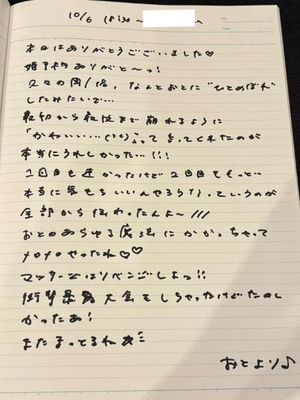 10/6 18:30〜
本日はありがとうございました♡
ありがと〜っ!
久々の なんとおとに"ひとめぼれ"
したみたいで…
最初から最後まで 崩れるように
「かわいい…(››)」って言ってくれたのが
本当にうれしかった…!!!
1回目も だったけど2回目も もっと…
本当に 気もちいいんやろうな。というのが
全部から伝わったんよ〜///
おとのあらゆる 法にかかっちゃって
メロメロやったね♡♡
マットではリベンジしよっ!!
大会をしちゃったけどたのし
かったあ!
またまってるね
おとより♪